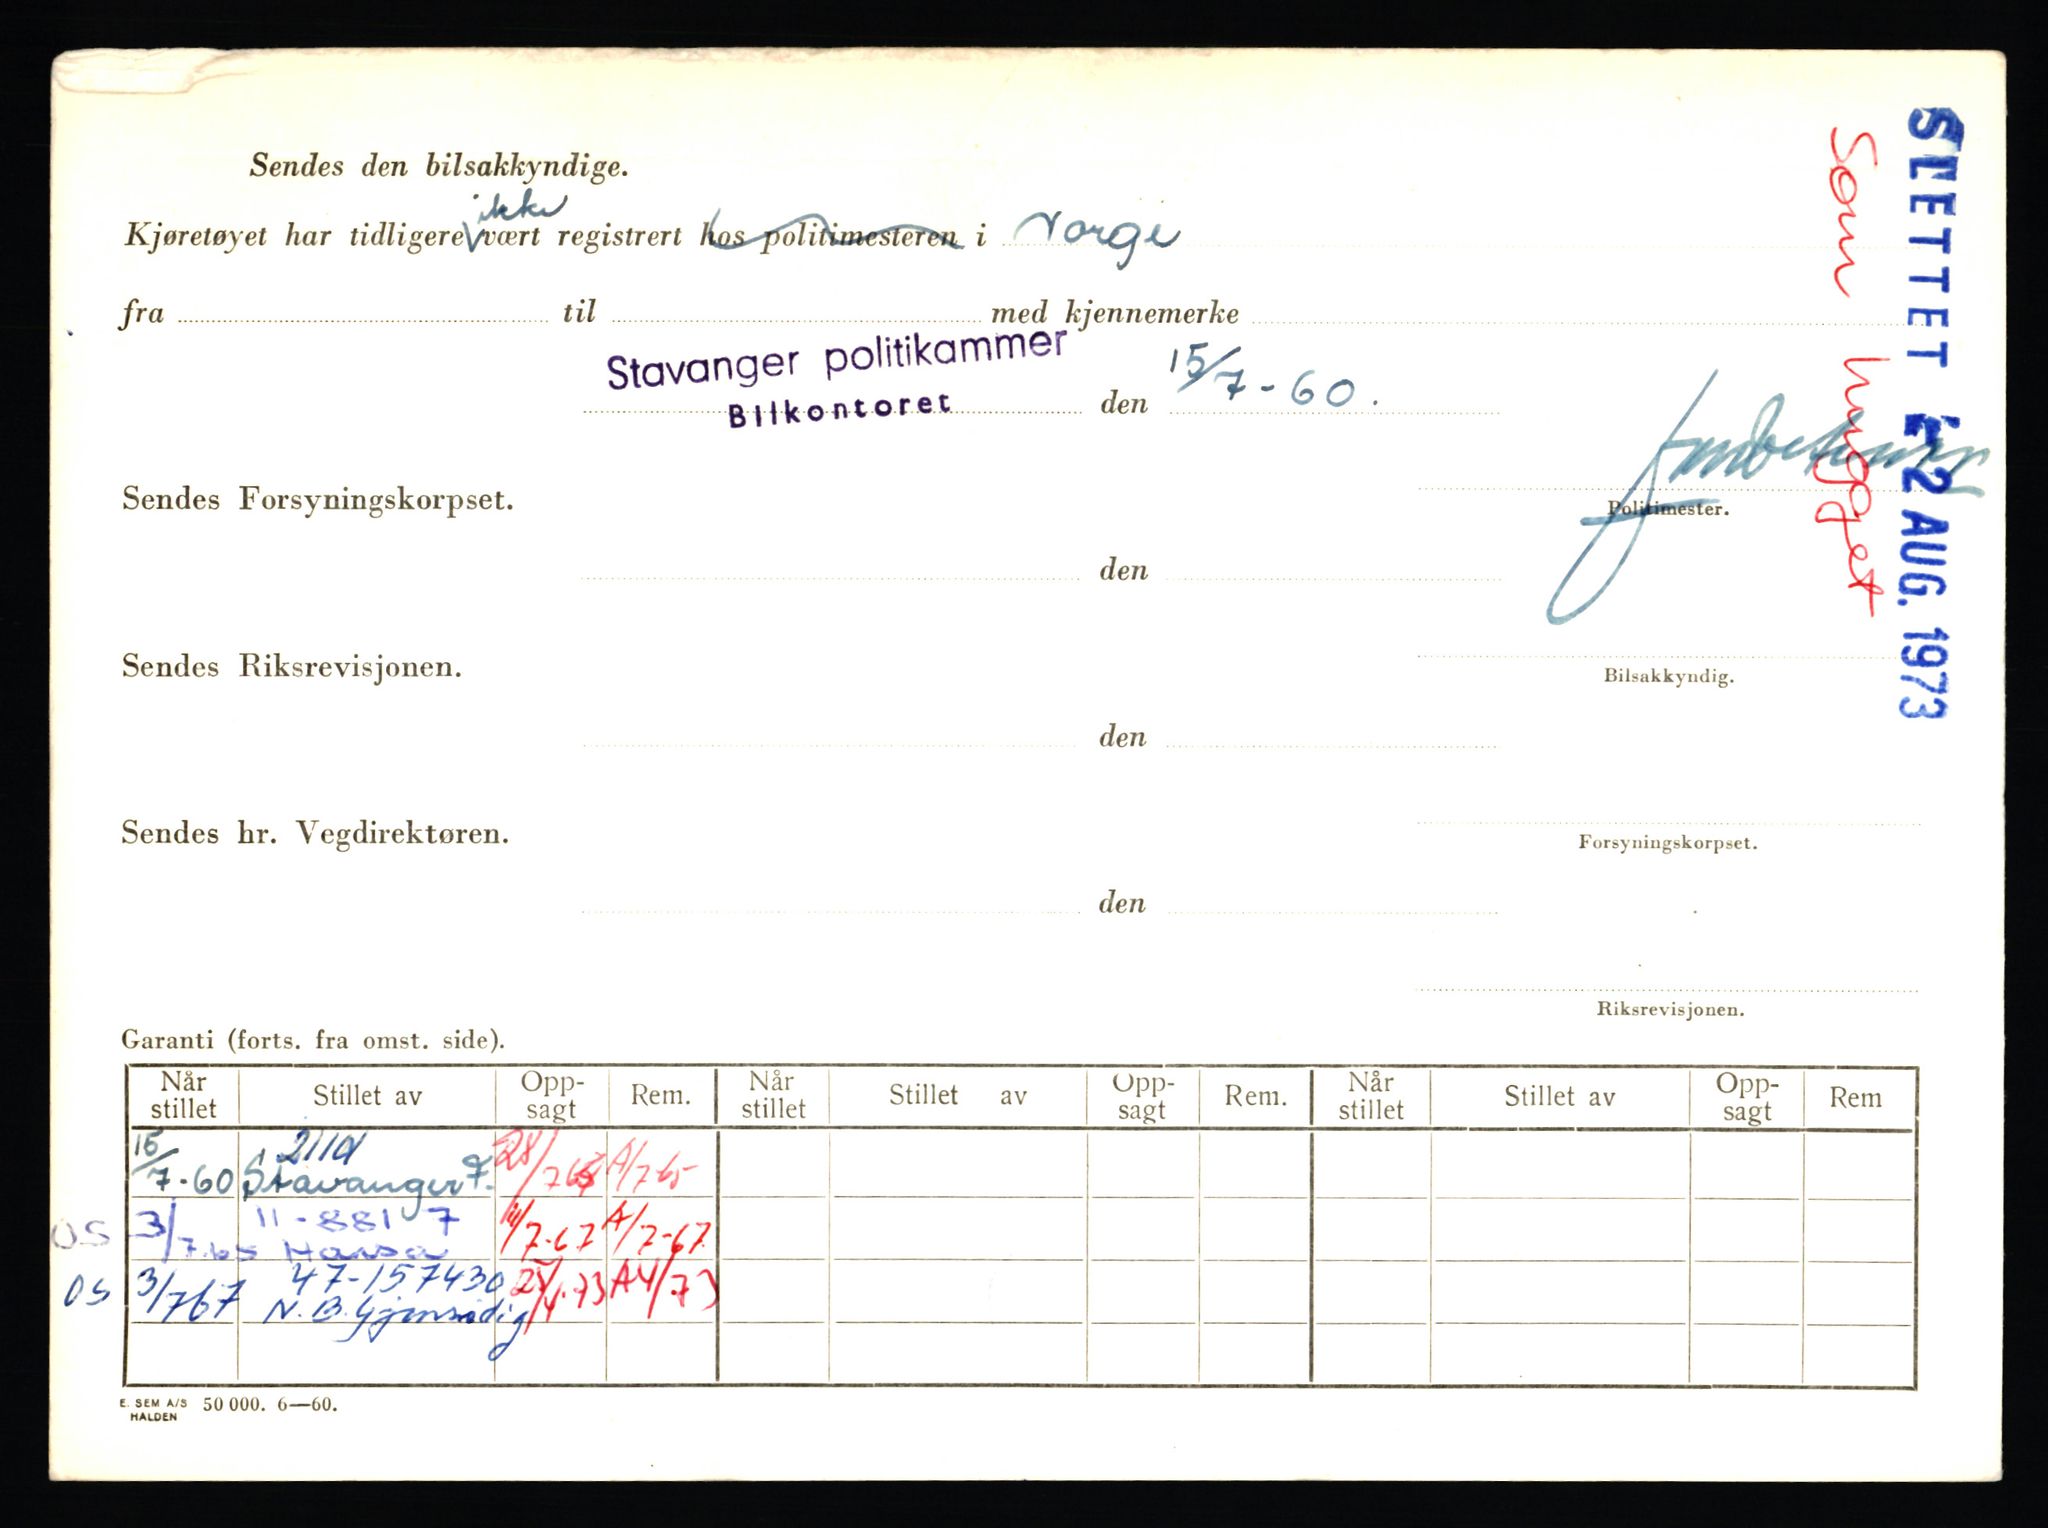 Sendes den bilsakkyndige.
ikke
Kjøretøyet har tidligere vært registrert hos politimesteren i Norge
fra til med kjennemerke
Stavanger politikammer
Bilkontoret
den 15/7-60.
Sendes Forsyningskorpset.
Politimester.
den
Sendes Riksrevisjonen.
Bilsakkyndig.
den
Sendes hr. Vegdirektøren.
Forsyningskorpset.
den
Riksrevisjonen.
SLETTET 2 AUG. 1973
Som hugget
Garanti (forts. fra omst. side).
Når stillet Stillet av Opp-sagt Rem. Når stillet Stillet av Opp-sagt Rem. Når stillet Stillet av Opp-sagt Rem
15/7-60 Stavanger F. 28/7 65 A/7-65
US 3/7.65 11-881 7 Hansa 14/7-67 A/7-67
OS 3/767 47-157430 N.B. Gjensidig 25/4.73 A4/73
E. SEM A/S
HALDEN
50 000. 6—60.